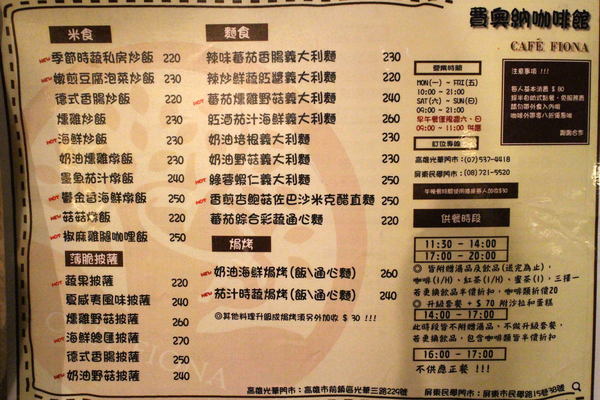 費奧納咖啡館
CAFÉ FIONA
米食
NEW 季節時蔬私房炒飯 220
NEW 嫩煎豆腐泡菜炒飯 230
德式香腸炒飯 220
燻雞炒飯 230
HOT 海鮮炒飯 250
奶油燻雞燉飯 230
墨魚茄汁燉飯 240
HOT 鬱金香海鮮燉飯 250
NEW 菇菇燉飯 220
HOT 椒麻雞腿咖哩飯 250
薄脆披薩
HOT 蔬果披薩 220
夏威夷風味披薩 240
燻雞野菇披薩 260
HOT 海鮮總匯披薩 270
德式香腸披薩 250
NEW 奶油野菇披薩 240
麵食
辣味蕃茄香腸義大利麵 230
辣炒鮮蔬鯷醬義大利麵 220
HOT 蕃茄燻雞野菇義大利麵 240
鯷酒茄汁海鮮義大利麵 260
奶油培根義大利麵 230
奶油野菇義大利麵 230
HOT 綠蓉蝦仁義大利麵 250
HOT 香煎杏鮑菇佐巴沙米克醋直麵 250
蕃茄綜合彩蔬通心麵 220
焗烤
NEW 奶油海鮮焗烤(飯\通心麵) 260
NEW 茄汁時蔬焗烤(飯\通心麵) 240
◎其他料理升級成焗烤須另外加收 $ 30 !!!
營業時間
MON(一) ~ FRI(五)
10:00 ~ 21:00
SAT(六) ~ SUN(日)
09:00 ~ 21:00
早午餐僅限週六、日
09:00 ~ 11:00 供應
訂位專線
高雄光華門市:(07)537-4418
屏東民學門市:(08)721-5520
注意事項 !!!
每人基本消費 $ 80
謝謝合作
供餐時段
11:30 - 14:00
17:00 - 20:00
◎ 皆附贈湯品及飲品(送完為止),
咖啡(I/H)、紅茶(I/H)、蜜茶(I),三擇一
若更換飲品半價折扣,咖啡類折價20
◎ 升級套餐 + $ 70 附沙拉和蛋糕
14:00 - 17:00
此時段皆不附贈湯品、不做升級套餐,
若更換飲品,包含咖啡類皆半價折扣
16:00 - 17:00
不供應正餐 !!!
高雄光華門市:高雄市前鎮區光華三路229號 屏東民學門市:屏東市民學路15巷38號